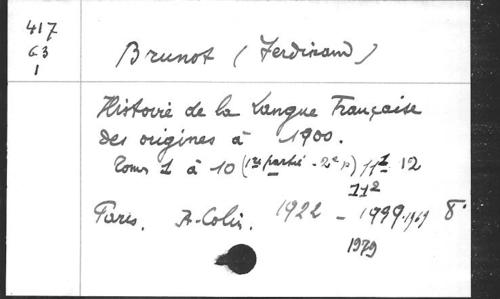 417
63
1
Brunot (Ferdinand)
Histoire de la Langue Française
des origines à 1900.
Tomes 1 à 10 (1re partie - 2e p) 11 1 12
11 2
Paris. A-Colin. 1922 - 1999.1969 8°
1979